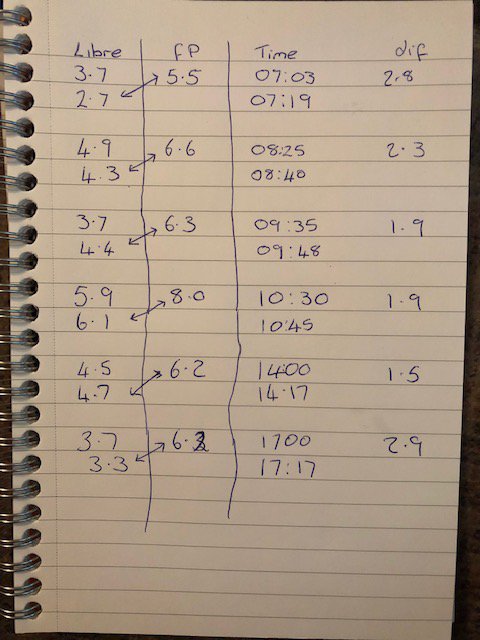 Libre FP Time dif
3.7 5.5 07:03 2.8
2.7 07:19
4.9 6.6 08:25 2.3
4.3 08:40
3.7 6.3 09:35 1.9
4.4 09:48
5.9 8.0 10:30 1.9
6.1 10:45
4.5 6.2 1400 1.5
4.7 14.17
3.7 6.2 1700 2.9
3.3 17:17